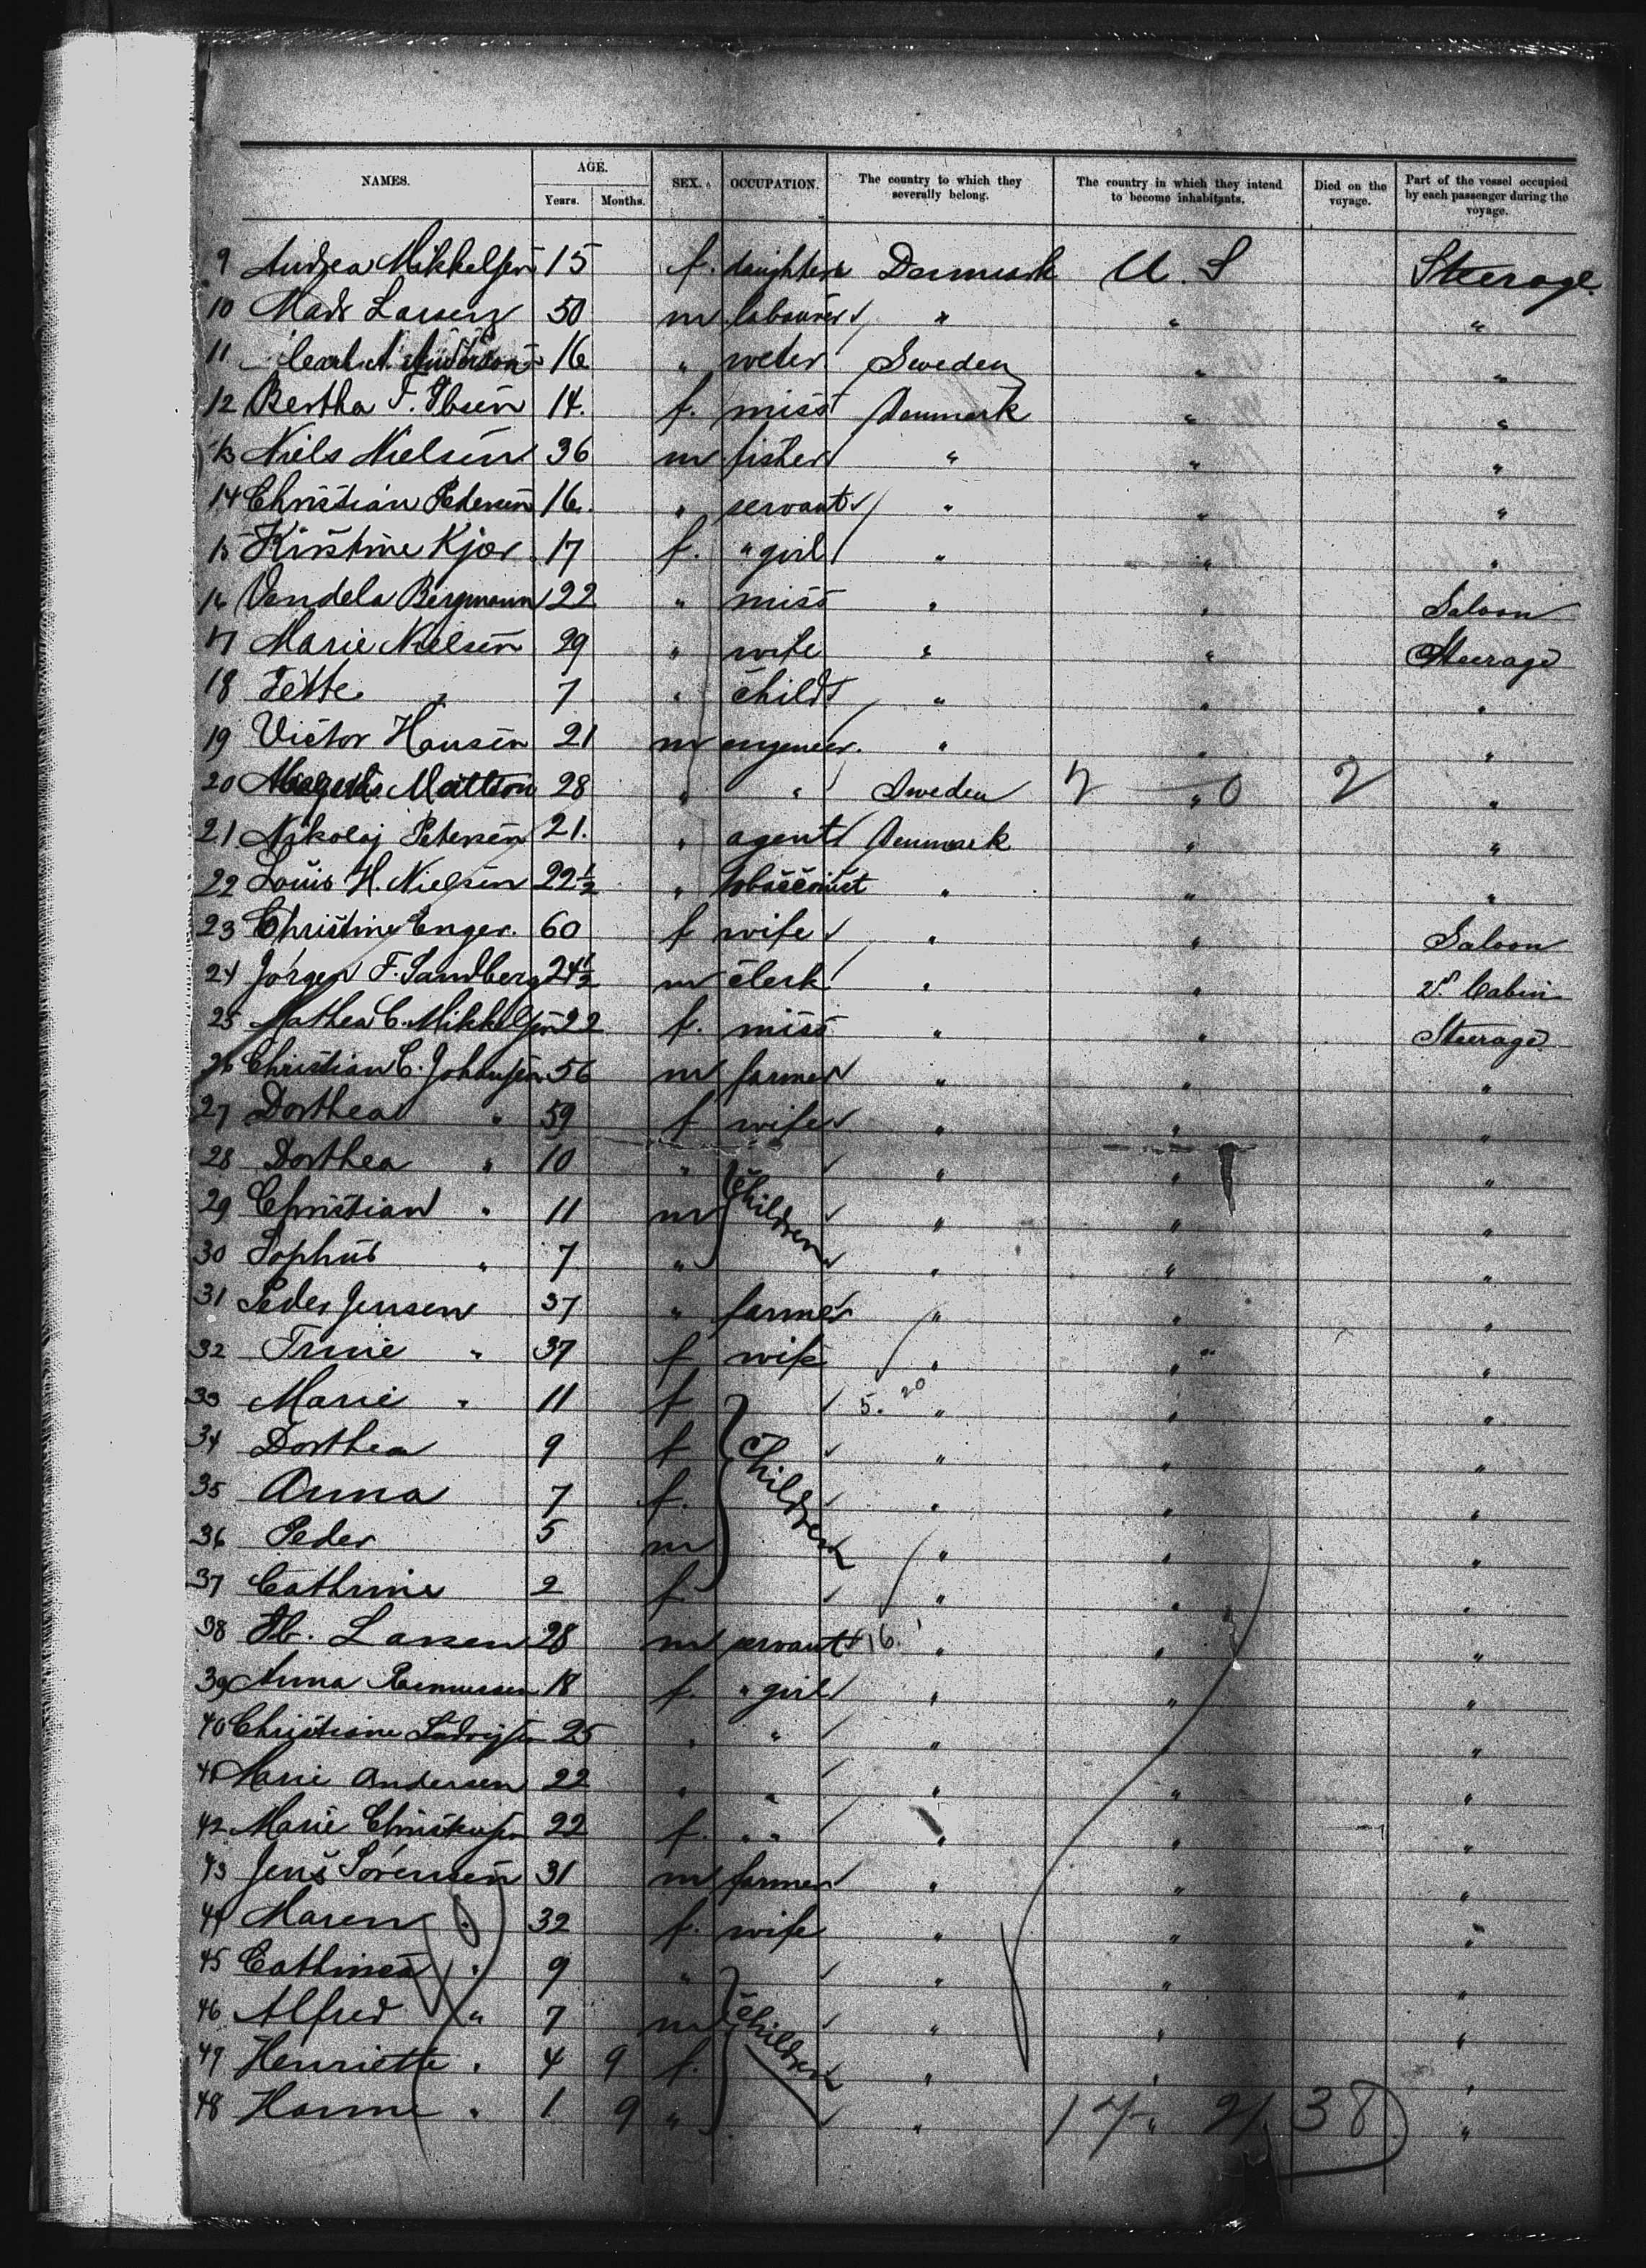 NAMES. AGE. SEX. OCCUPATION. The country to which they severally belong. The country in which they intend to become inhabitants. Died on the voyage. Part of the vessel occupied by each passenger during the voyage.
Years. Months.
9 Andrea Mikkelsen 15 f. daughter Danmark U. S Steerage.
10 Mads Larsen 50 m labourer " " "
11 Carl A. Anderson 16 " Sweden " "
12 Bertha F. Ibsen 14. f. miss Denmark " "
13 Niels Nielsen 36 m fisher " " "
14 Christian Petersen 16. " servant " " "
15 Kirstine Kjær 17 f. " girl " " "
16 Vendela Bergmann 22 " miss " " Saloon
17 Marie Nielsen 29 " wife " " Steerage
18 Jette " 7 " child " " "
19 Victor Hansen 21 m engeneer. " " "
20 Mattson 28 " " Sweden " "
21 Nikolaj Petersen 21. " agent Denmark " "
22 Louis H. Nielsen 22½ " tobacconist " " "
23 Christine Enger. 60 f wife " " Saloon
24 Jörgen F. Sandberg 24½ m clerk " " 2d. Cabin
25 Mathea C. Mikkelsen 22 f. miss " " Steerage
26 Christian C. Johansen 56 m farmer " " "
27 Dorthea " 59 f wife " " "
28 Dorthea " 10 " children " " "
29 Christian " 11 m " " "
30 Sophus " 7 " " " "
31 Peder Jensen 37 " farmer " " "
32 Trine " 37 f wife " " "
33 Marie " 11 f 5. 20 " " "
34 Dorthea 9 f Children " " "
35 Anna 7 f. " " "
36 Peder 5 m " " "
37 Cathrine 2 f " " "
38 Ib. Larsen 28 m servant 16. " " "
39 Anna Rasmussen 18 f. " girl " " "
40 Christiane Ludvigsen 25 " " " " "
41 Marie Andersen 22 " " " " "
42 Marie Christensen 22 f. " " " " "
43 Jens Sörensen 31 m farmer " " "
44 Maren " 32 f. wife " " "
45 Cathinca " 9 " " " "
46 Alfred " 7 m children " " "
47 Henriette " 4 9 f. " " "
48 Hanne " 1 9 " " 17 " 21 38 "